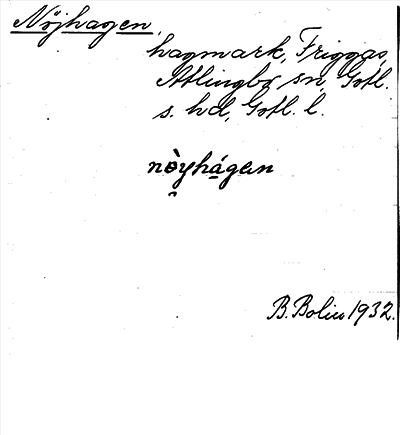 Nöjhagen,
hagmark, Friggas,
Atlingbo sn, Gotl.
s. hd, Gotl. l.
nòyhágan
B. Bolin 1932.